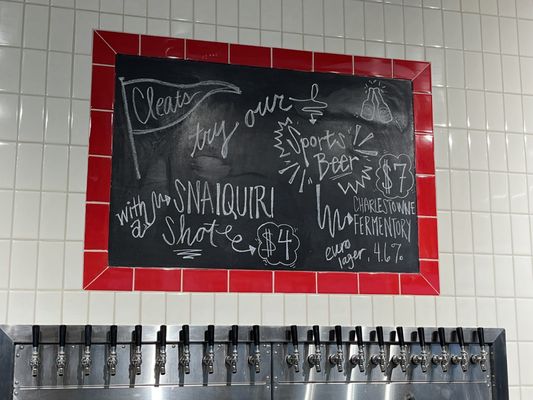 Cleats
try our
Sports
Beer
$7
with
a
SNAIQUIRI
Shot
$4
CHARLESTOWNE
FERMENTORY
euro
lager, 4.6%